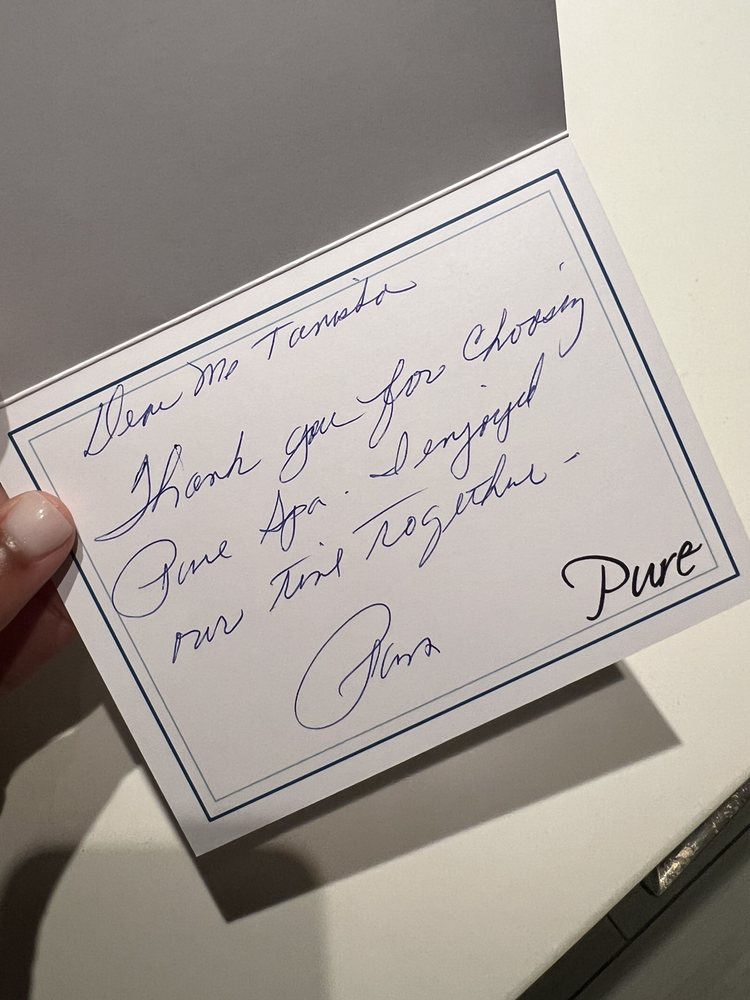 Dear Ms
Thank you for choosing
Pure Spa. I enjoyed
our time together -
Pure